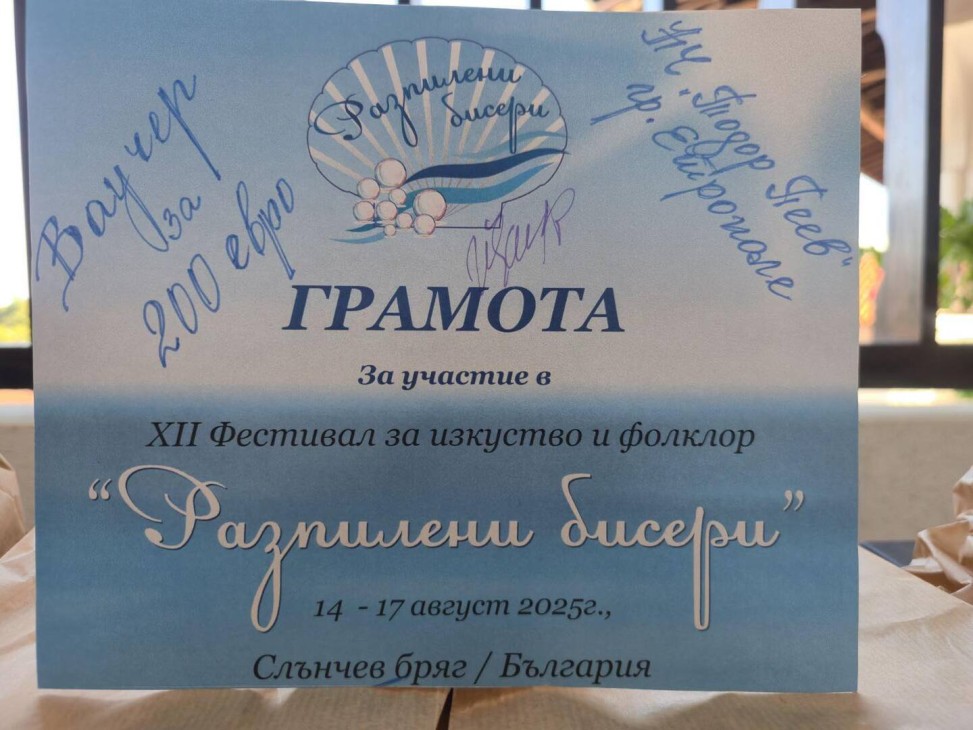 Разпилени
бисери
Ваучер
за
200 евро
НЧ "Тодор Пеев"
гр. Етрополе
ГРАМОТА
За участие в
XII Фестивал за изкуство и фолклор
“Разпилени бисери”
14 - 17 август 2025г.,
Слънчев бряг / България